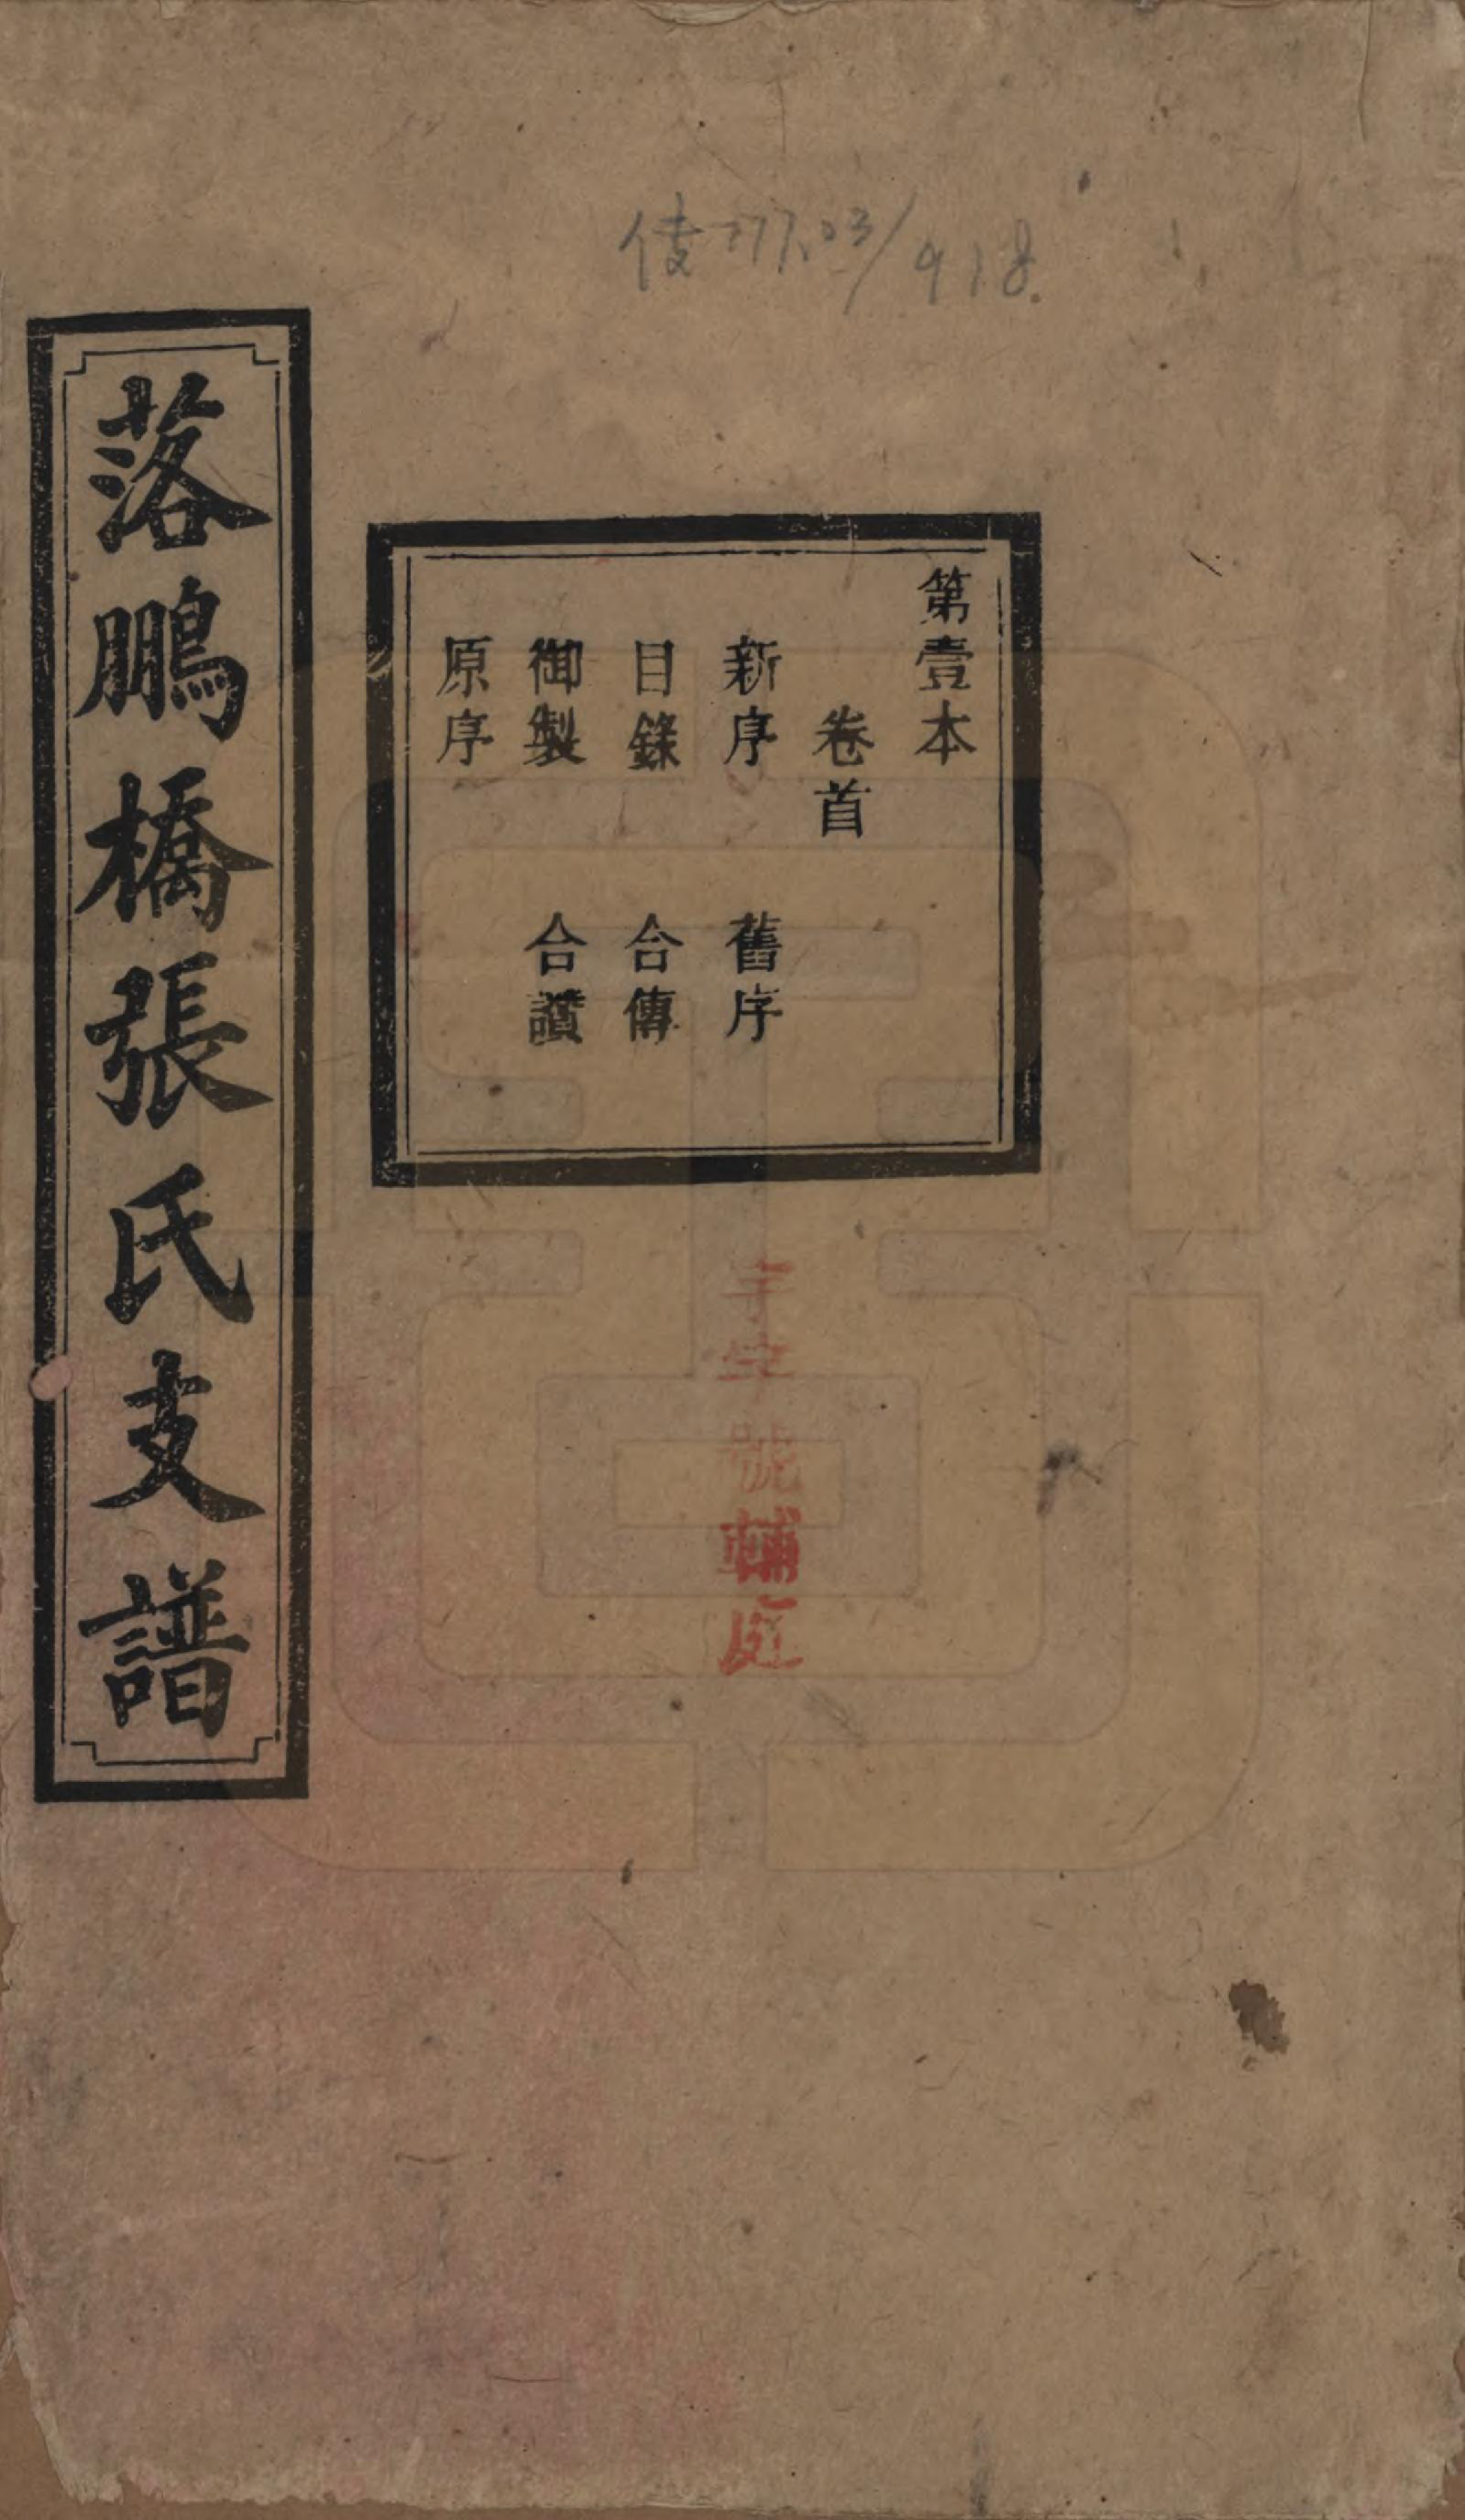 傳777.03/918.
第壹本
卷首
新序 舊序
目錄 合傳
御製 合讚
原序
落鵬橋張氏支譜
字號輔庭